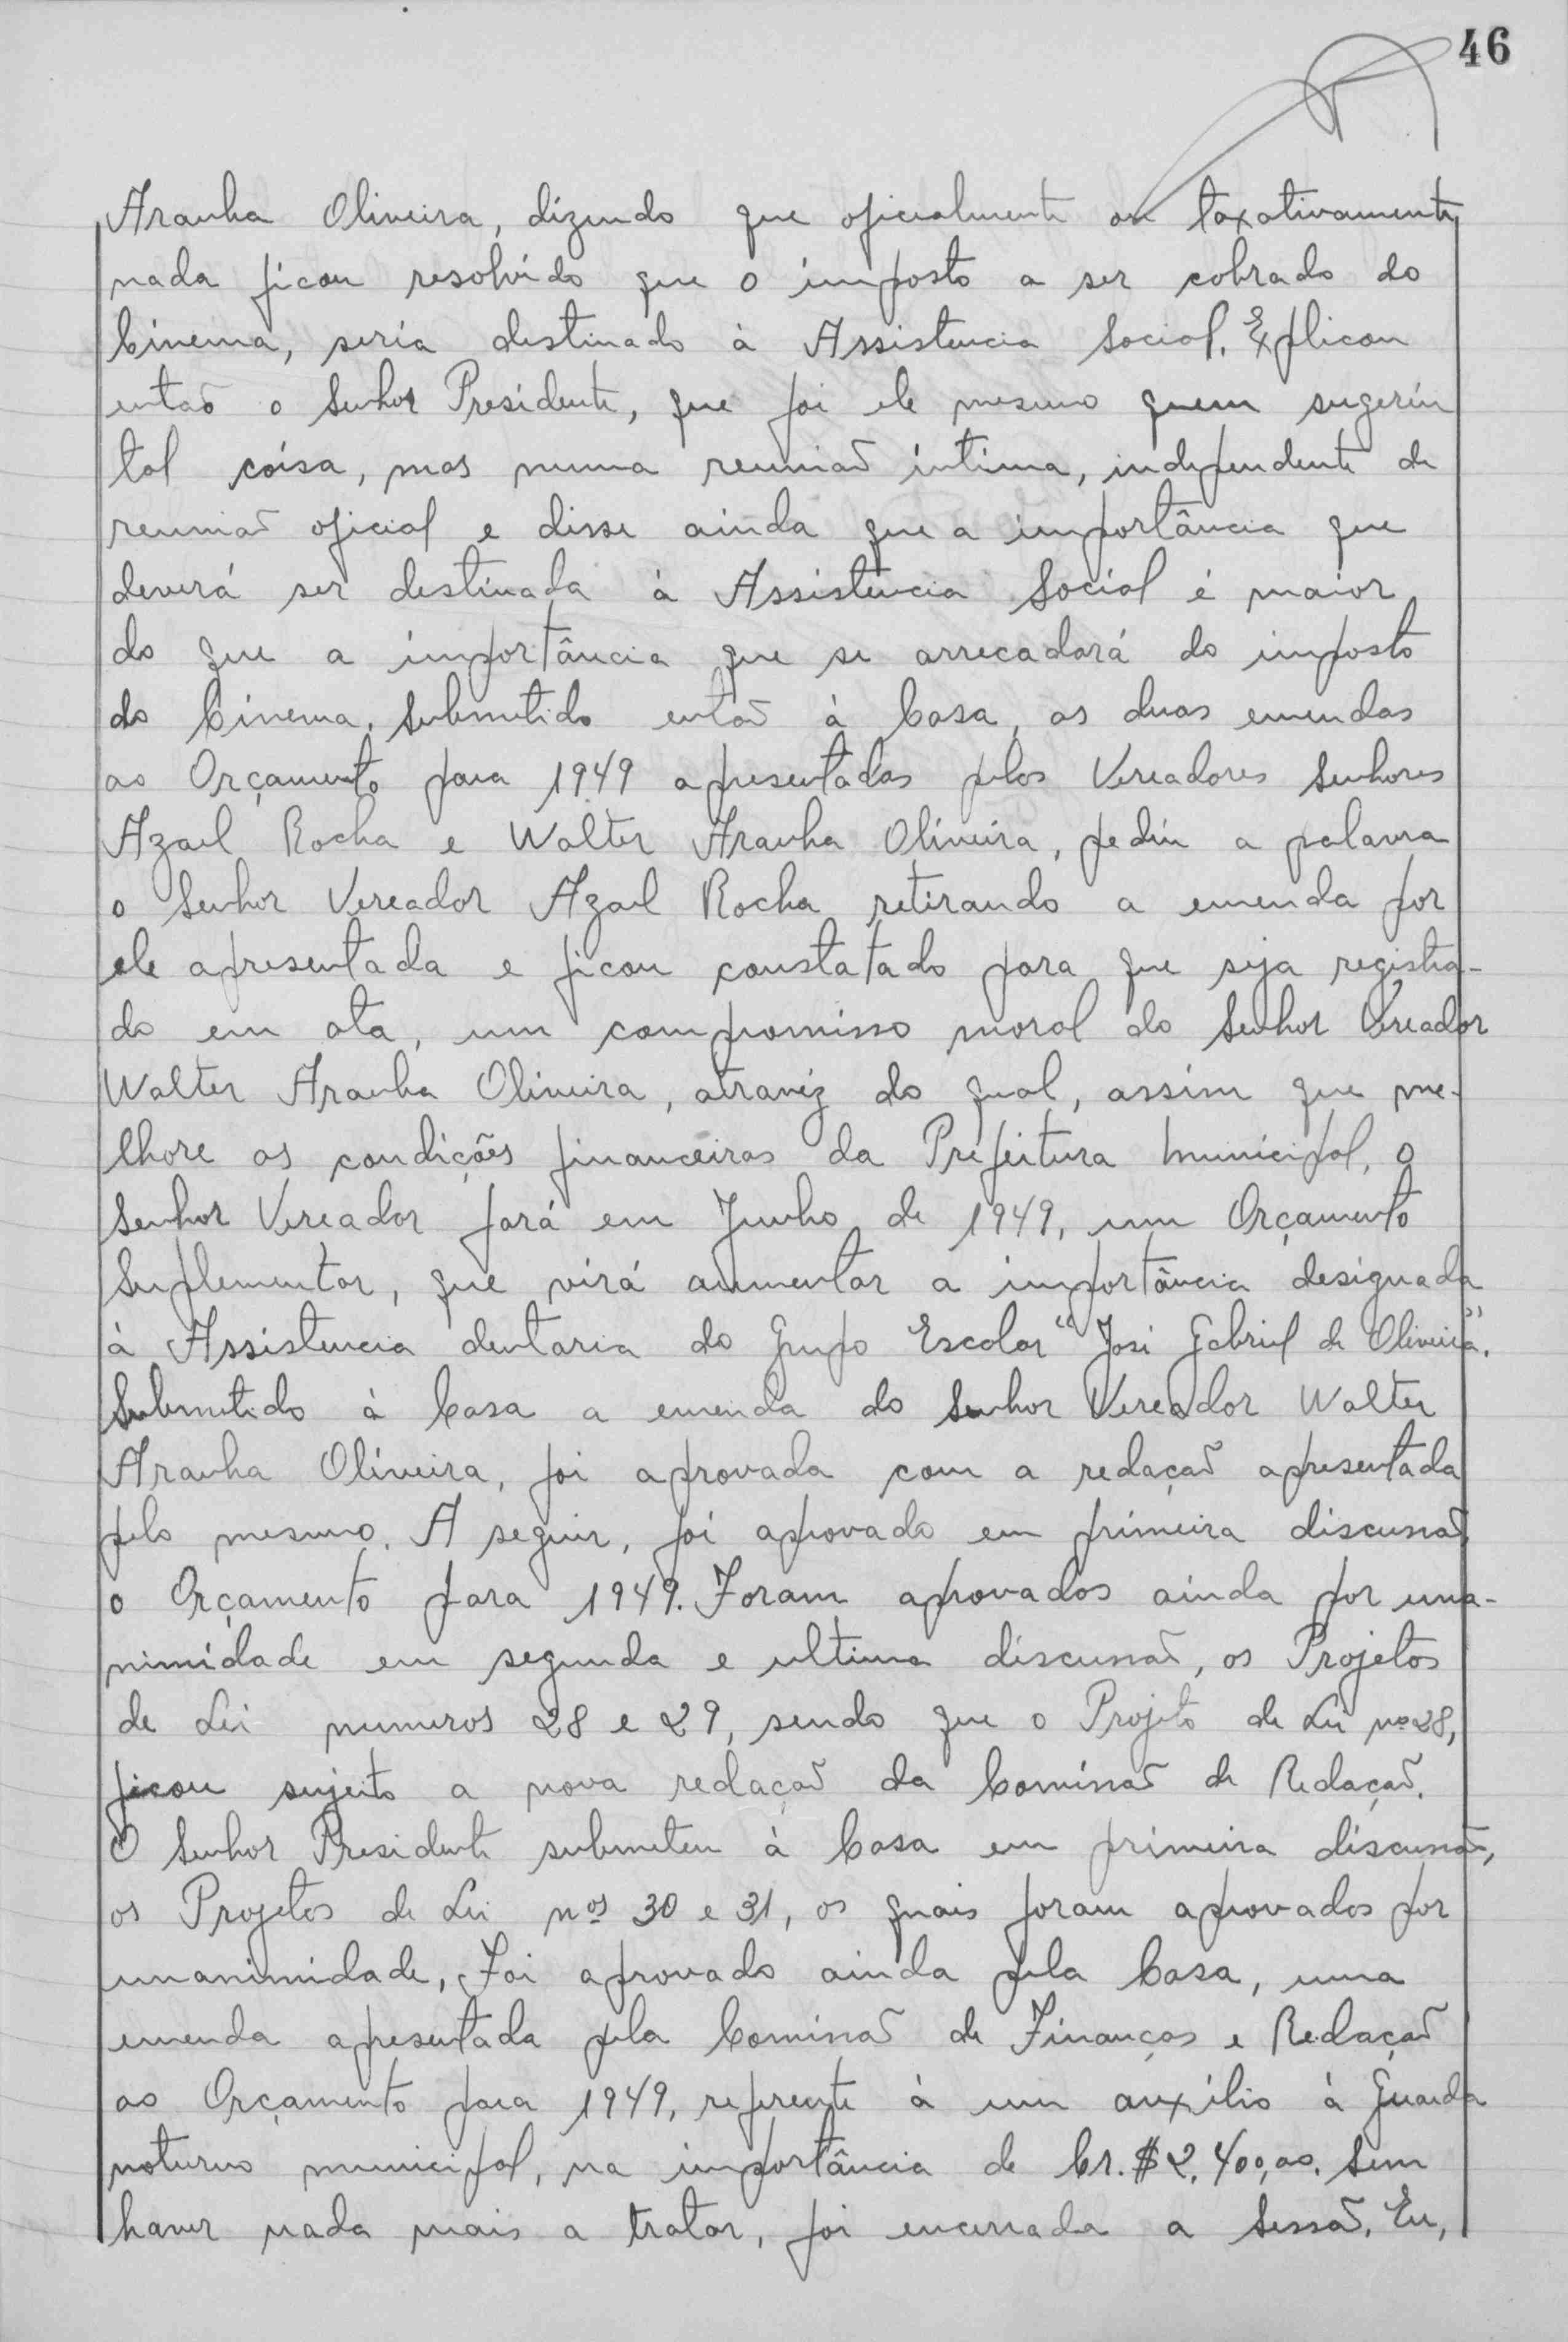 46
Aranha Oliveira, dizendo que oficialmente ou taxativamente
nada ficou resolvido que o imposto a ser cobrado do
Cinema, seria destinado à Assistencia Social. Explicou
então o Senhor Presidente, que foi ele mesmo quem sugeriu
tal coisa, mas numa reunião íntima, independente de
reunião oficial e disse ainda que a importância que
deverá ser destinada à Assistência Social é maior
do que a importância que se arrecadará do imposto
do Cinema. Submetido então à Casa, as duas emendas
ao Orçamento para 1949 apresentadas pelos Vereadores Senhores
Azael Rocha e Walter Aranha Oliveira, pediu a palavra
o Senhor Vereador Azael Rocha retirando a emenda por
ele apresentada e ficou constatado para que seja registra-
do em ata, um compromisso moral do Senhor Vereador
Walter Aranha Oliveira, atravéz do qual, assim que me-
lhore as condições financeiras da Prefeitura Municipal, o
Senhor Vereador fará em Junho de 1949, um Orçamento
Suplementar, que virá aumentar a importância designada
à Assistencia dentaria do Grupo Escolar "José Gabriel de Oliveira".
Submetido à Casa a emenda do Senhor Vereador Walter
Aranha Oliveira, foi aprovada com a redação apresentada
pelo mesmo. A seguir, foi aprovado em primeira discussão
o Orçamento para 1949. Foram aprovados ainda por una-
nimidade em segunda e ultima discussão, os Projetos
de Lei numeros 28 e 29, sendo que o Projeto de Lei nº 28,
ficou sujeito a nova redação da Comissão de Redação.
O Senhor Presidente submeteu à Casa em primeira discussão,
os Projetos de Lei nºs 30 e 31, os quais foram aprovados por
unanimidade. Foi aprovado ainda pela Casa, uma
emenda apresentada pela Comissão de Finanças e Redação
ao Orçamento para 1949, referente à um auxílio à Guarda
noturno municipal, na importância de Cr.$2.400,00. Sem
haver nada mais a tratar, foi encerrada a Sessão. Eu,